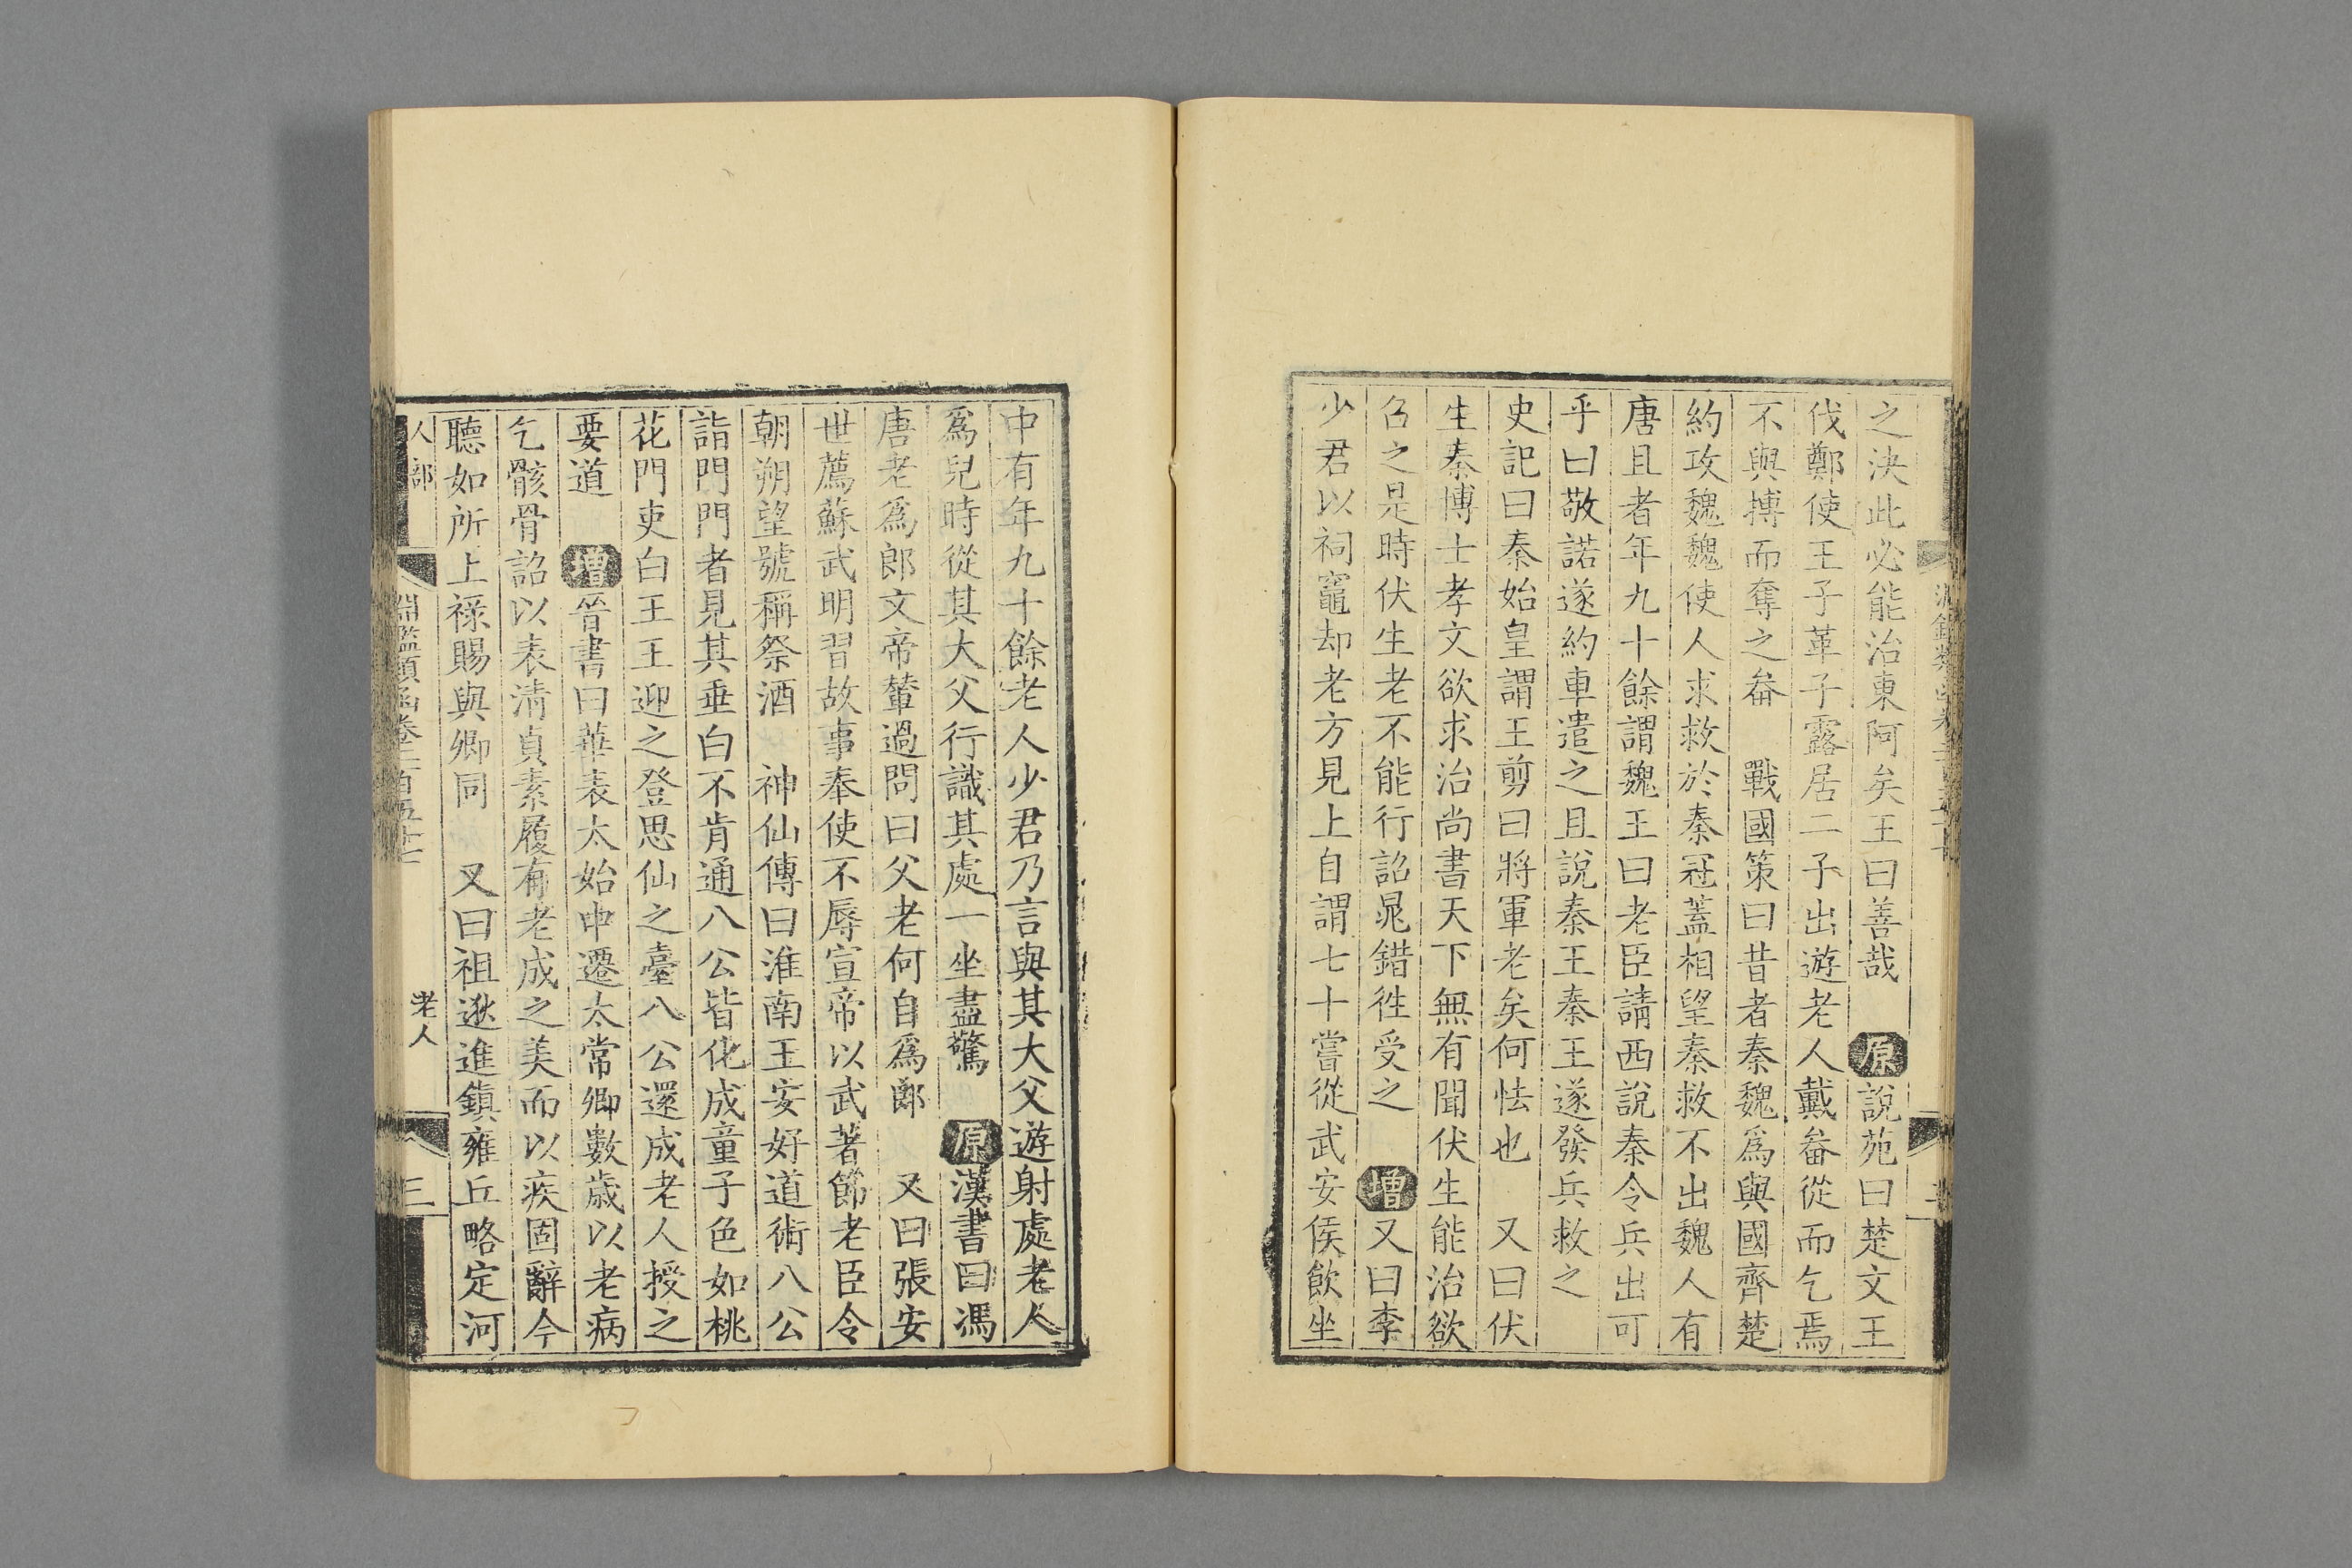 之決此必能治東阿矣王曰善哉 原說苑曰楚文王
伐鄭使王子革子露居二子出遊老人戴畚從而乞焉
不與搏而奪之畚 戰國策曰昔者秦魏爲與國齊楚
約攻魏魏使人求救於秦冠蓋相望秦救不出魏人有
唐且者年九十餘謂魏王曰老臣請西說秦令兵出可
乎曰敬諾遂約車遣之且說秦王秦王遂發兵救之
史記曰秦始皇謂王剪曰將軍老矣何怯也 又曰伏
生秦博士孝文欲求治尚書天下無有聞伏生能治欲
召之是時伏生老不能行詔晁錯徃受之 增又曰李
少君以祠竈却老方見上自謂七十嘗從武安侯飲坐
中有年九十餘老人少君乃言與其大父遊射處老人
爲兒時從其大父行識其處一坐盡驚 原漢書曰馮
唐老爲郎文帝輦過問曰父老何自爲郎 又曰張安
世薦蘇武明習故事奉使不辱宣帝以武著節老臣令
朝朔望號稱祭酒 神仙傳曰淮南王安好道術八公
詣門門者見其垂白不肯通八公皆化成童子色如桃
花門吏白王王迎之登思仙之臺八公還成老人授之
要道 增晉書曰華表太始中遷太常卿數歲以老病
乞骸骨詔以表淸貞素履有老成之美而以疾固辭今
聽如所上祿賜與卿同 又曰祖逖進鎮雍丘略定河
人部 淵鑑類函卷二百五十七 老人 三